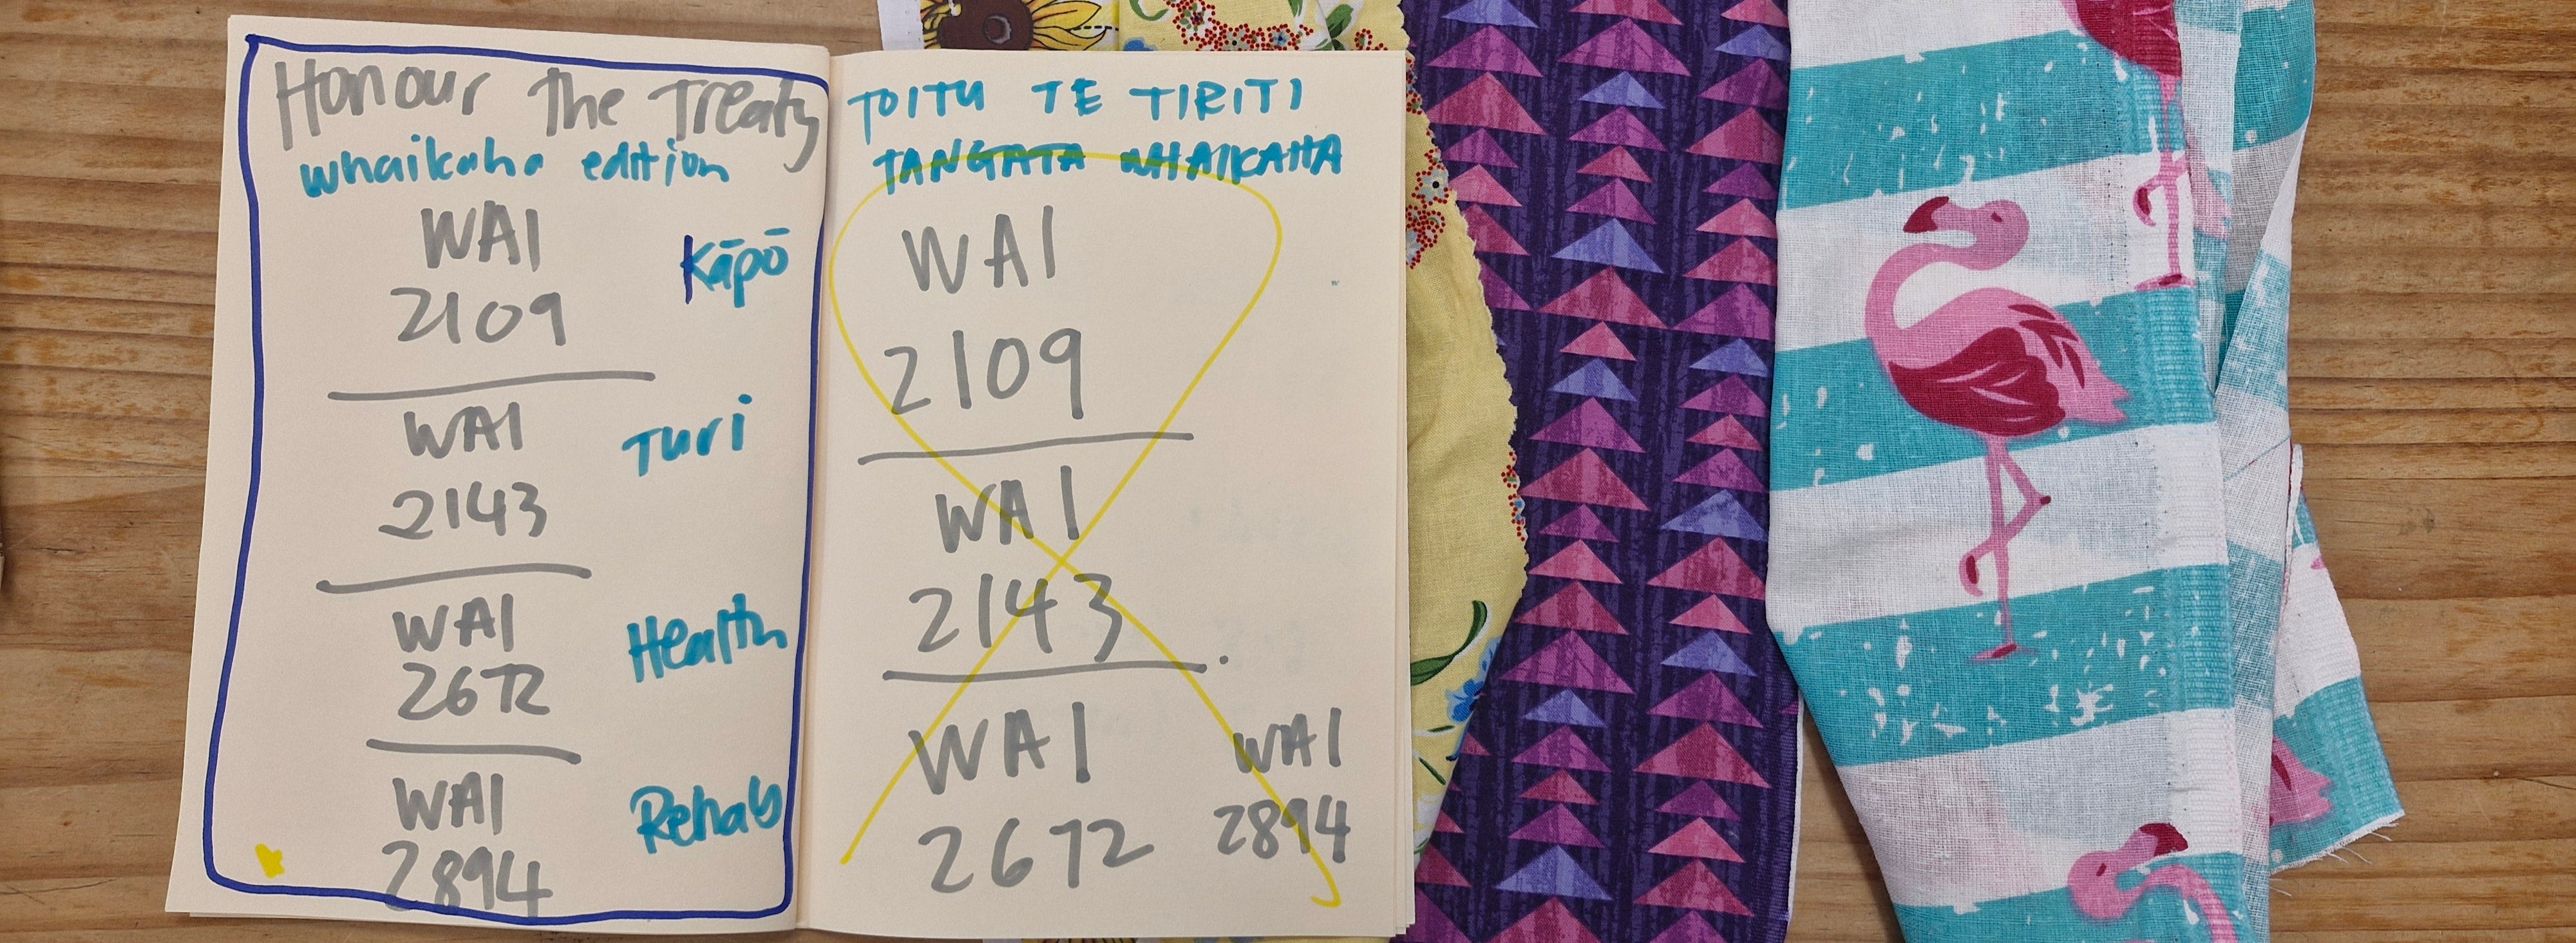 Honour The Treaty
whaikaha edition
WAI
2109
Kāpō
WAI
2143
Turi
WAI
2672
Health
WAI
2894
Rehab
TOITU TE TIRITI
TANGATA WHAIKAHA
WAI
2109
WAI
2143
WAI
2672
WAI
2894